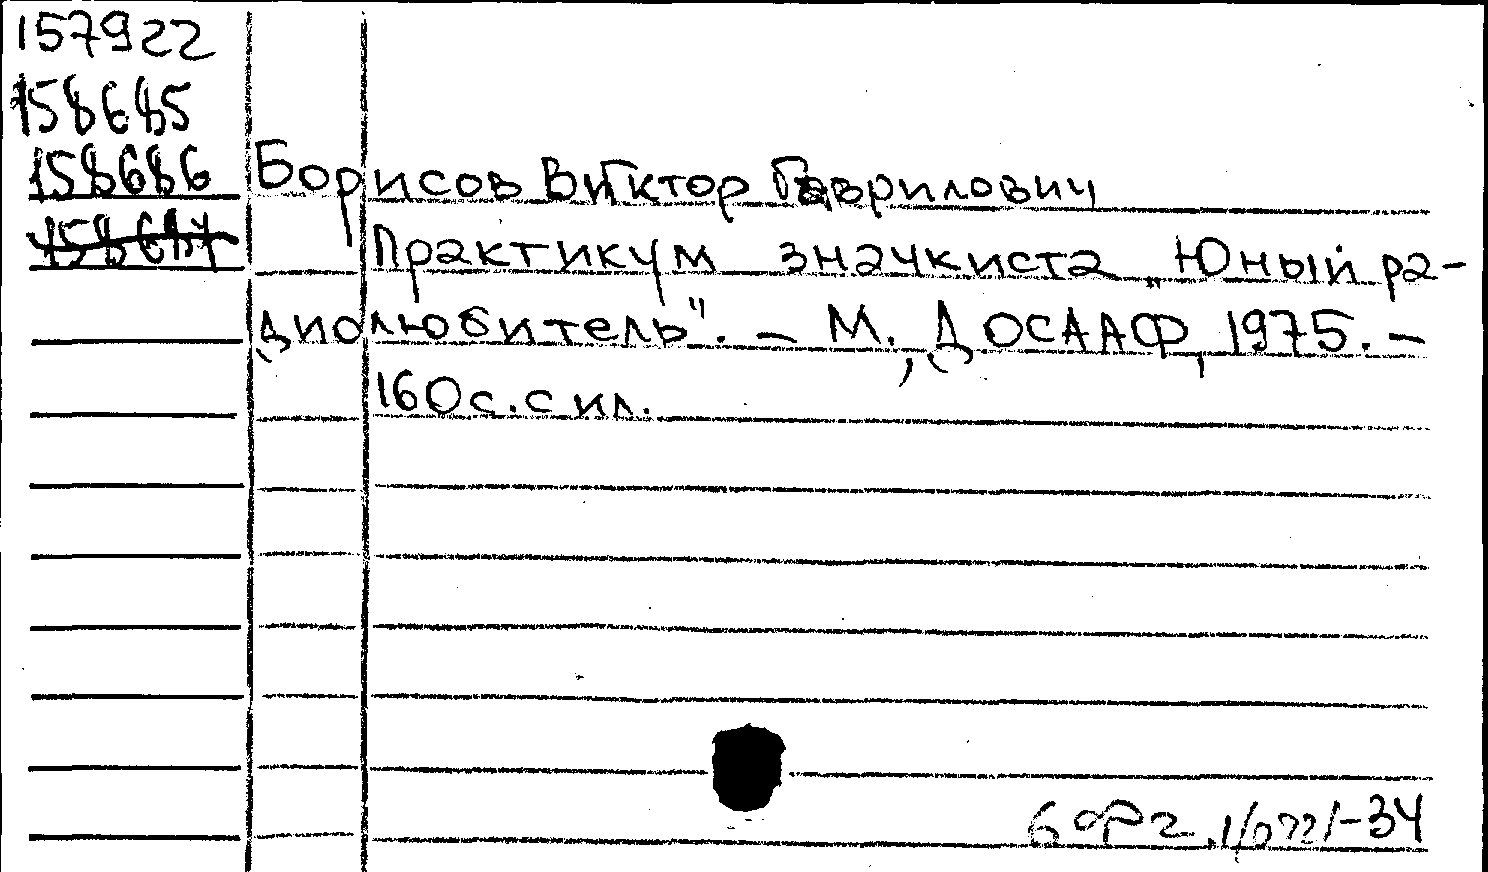 157922
158685
158686
Борисов Виктор Гаврилович
Практикум значкиста „Юный ра-
диолюбитель". — М., ДОСААФ, 1975. —
160 с. с ил.
6Ф2.1/022/-34